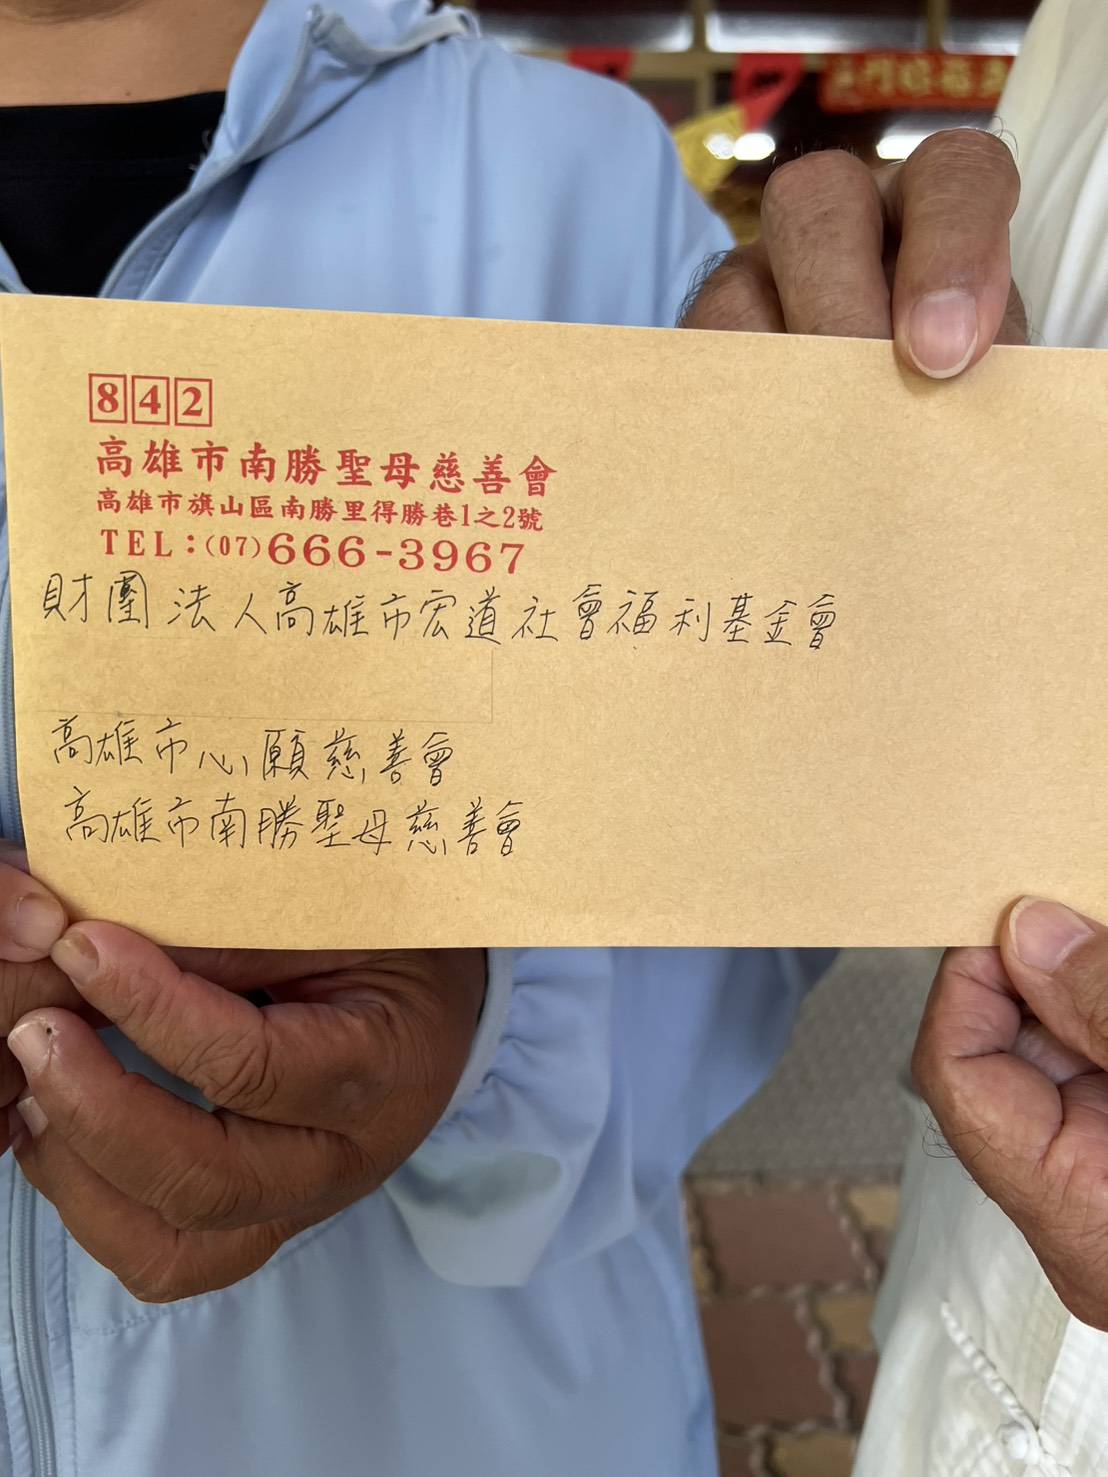 842
高雄市南勝聖母慈善會
高雄市旗山區南勝里得勝巷1之2號
TEL：(07)666-3967
財團法人高雄市宏道社會福利基金會
高雄市心願慈善會
高雄市南勝聖母慈善會